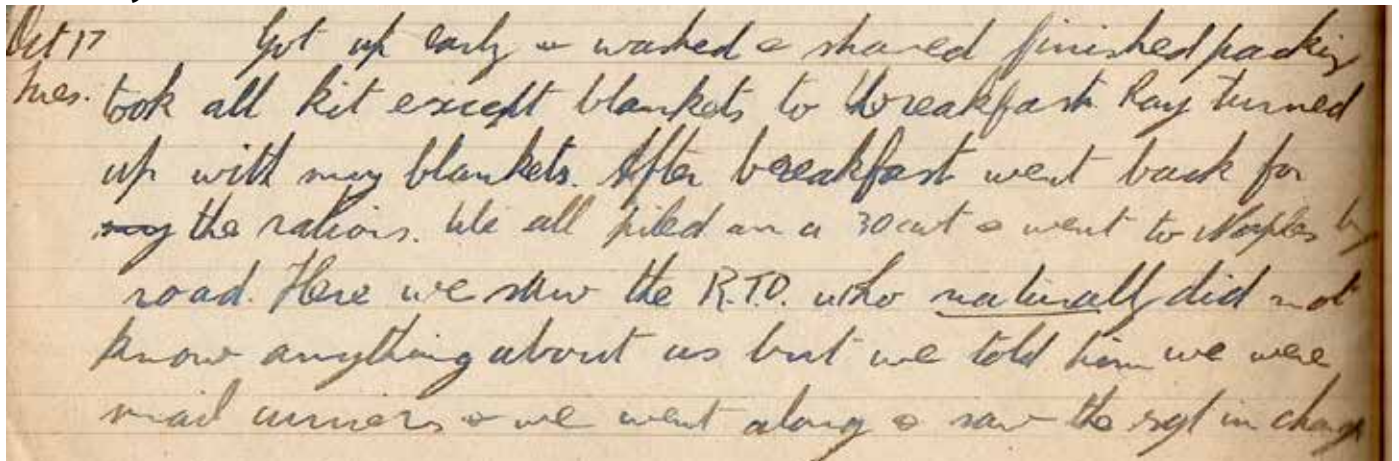 Oct 17 Got up early & washed & shaved finished packing
Tues. took all kit except blankets to breakfast. Ray turned
up with my blankets. After breakfast went back for
my the rations. We all piled on a 30cwt & went to Naples by
road. Here we saw the R.T.O. who naturally did not
know anything about us but we told him we were
mail carriers & we went along & saw the sgt in charge